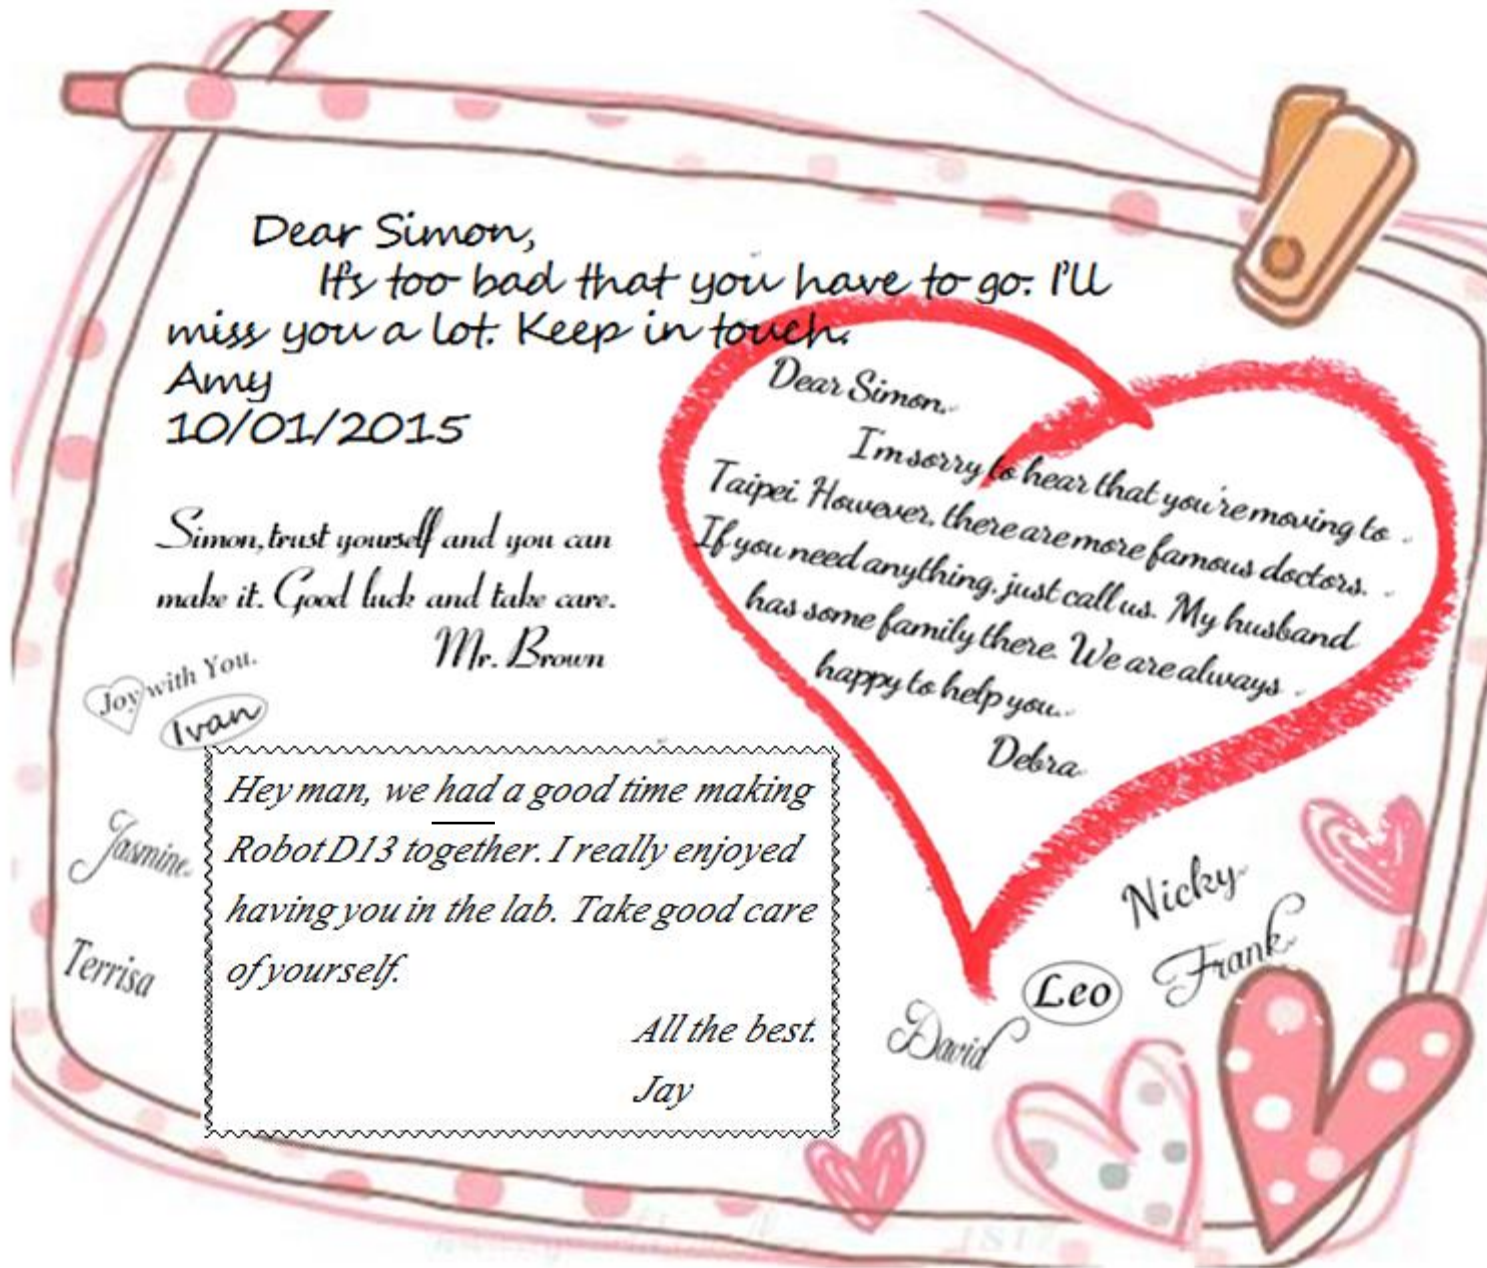 Dear Simon,
It's too bad that you have to go. I'll
miss you a lot. Keep in touch.
Amy
10/01/2015
Dear Simon,
I'm sorry to hear that you're moving to
Taipei. However, there are more famous doctors.
If you need anything, just call us. My husband
has some family there. We are always
happy to help you.
Debra
Simon, trust yourself and you can
make it. Good luck and take care.
Mr. Brown
Joy with You.
Ivan
Jasmine
Terrisa
Hey man, we had a good time making
Robot D13 together. I really enjoyed
having you in the lab. Take good care
of yourself.
All the best.
Jay
Nicky
Frank
Leo
David